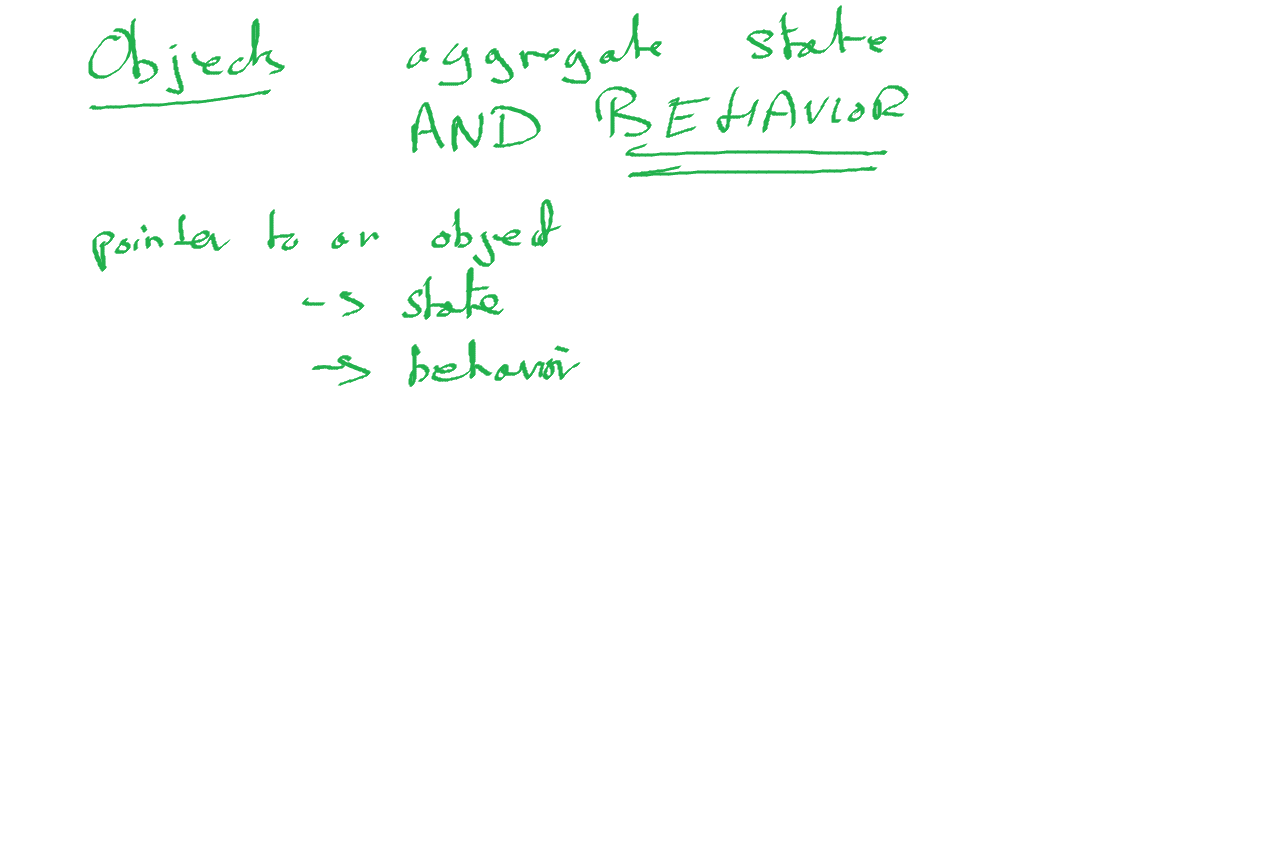 Objects aggregate state
AND BEHAVIOR
pointer to an object
-> state
-> behavior